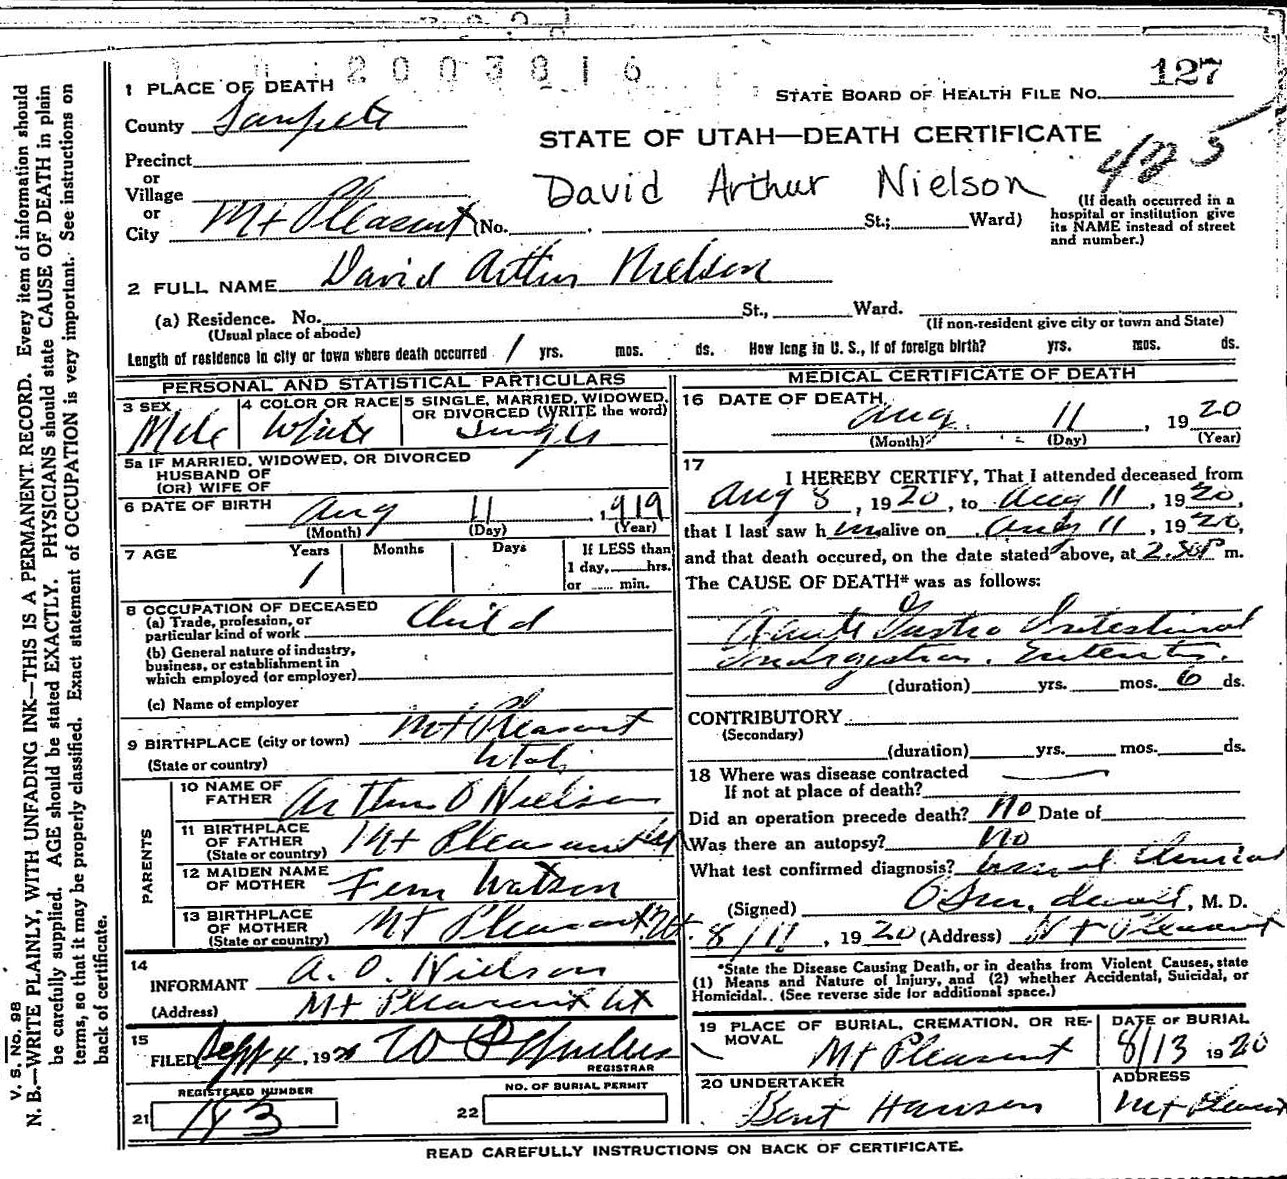 2003816
1 PLACE OF DEATH
STATE BOARD OF HEALTH FILE NO. 127
County Sanpete
STATE OF UTAH—DEATH CERTIFICATE
485
Precinct
or
Village
David Arthur Nielson
or
City Mt Pleasant (No. St.; Ward)
(If death occurred in a
hospital or institution give
its NAME instead of street
and number.)
2 FULL NAME David Arthur Nielson
(a) Residence. No. St., Ward.
(Usual place of abode)
(If non-resident give city or town and State)
Length of residence in city or town where death occurred 1 yrs. mos. ds. How long in U. S., if of foreign birth? yrs. mos. ds.
PERSONAL AND STATISTICAL PARTICULARS
3 SEX
Male
4 COLOR OR RACE
White
5 SINGLE, MARRIED, WIDOWED,
OR DIVORCED (WRITE the word)
Single
5a IF MARRIED, WIDOWED, OR DIVORCED
HUSBAND OF
(OR) WIFE OF
6 DATE OF BIRTH Aug 11, 1919
(Month) (Day) (Year)
7 AGE Years Months Days
1
If LESS than
1 day, hrs.
or min.
8 OCCUPATION OF DECEASED
(a) Trade, profession, or
particular kind of work Child
(b) General nature of industry,
business, or establishment in
which employed (or employer)
(c) Name of employer
9 BIRTHPLACE (city or town) Mt Pleasant
(State or country) Utah
PARENTS
10 NAME OF
FATHER Arthur O Nielson
11 BIRTHPLACE
OF FATHER
(State or country) Mt Pleasant Ut
12 MAIDEN NAME
OF MOTHER Fern Watson
13 BIRTHPLACE
OF MOTHER
(State or country) Mt Pleasant Ut
14
INFORMANT A. O. Nielson
(Address) Mt Pleasant Ut
15
FILED Sept 4, 19 W P
REGISTRAR
REGISTERED NUMBER
21 143
NO. OF BURIAL PERMIT
22
MEDICAL CERTIFICATE OF DEATH
16 DATE OF DEATH
Aug. 11, 1920
(Month) (Day) (Year)
17
I HEREBY CERTIFY, That I attended deceased from
Aug 8, 1920, to Aug 11, 1920,
that I last saw h im alive on Aug 11, 1920,
and that death occured, on the date stated above, at 2. P m.
The CAUSE OF DEATH* was as follows:
Acute Gastro Intestinal
Indigestion. Enteritis.
(duration) yrs. mos. 6 ds.
CONTRIBUTORY
(Secondary)
(duration) yrs. mos. ds.
18 Where was disease contracted
If not at place of death?
Did an operation precede death? No Date of
Was there an autopsy? No
What test confirmed diagnosis? Clinical
(Signed) , M. D.
8/11, 1920 (Address) Mt Pleasant
*State the Disease Causing Death, or in deaths from Violent Causes, state
(1) Means and Nature of Injury, and (2) whether Accidental, Suicidal, or
Homicidal. (See reverse side for additional space.)
19 PLACE OF BURIAL, CREMATION, OR RE-
MOVAL Mt Pleasant
DATE OF BURIAL
8/13 1920
20 UNDERTAKER
Bent Hansen
ADDRESS
Mt Pleasant
READ CAREFULLY INSTRUCTIONS ON BACK OF CERTIFICATE.
V. S. No. 98
N. B.—WRITE PLAINLY, WITH UNFADING INK—THIS IS A PERMANENT RECORD. Every item of information should
be carefully supplied. AGE should be stated EXACTLY. PHYSICIANS should state CAUSE OF DEATH in plain
terms, so that it may be properly classified. Exact statement of OCCUPATION is very important. See instructions on
back of certificate.